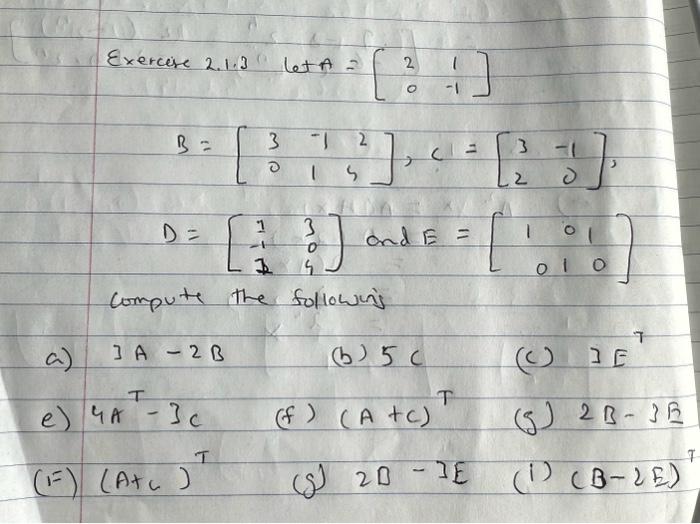 Exercise 2.1.3 let A = [ 2 1
0 -1 ]
B = [ 3 -1 2
0 1 4 ], C = [ 3 -1
2 0 ],
D = [ 1 3
-1 0
1 4 ] and E = [ 1 0 1
0 1 0 ]
compute the following
a) 3A - 2B (b) 5C (c) 3E^T
e) 4A^T - 3C (f) (A + C)^T (g) 2B - 3E
(F) (A+C)^T (g) 2B - 3E (i) (B - 2E)^T